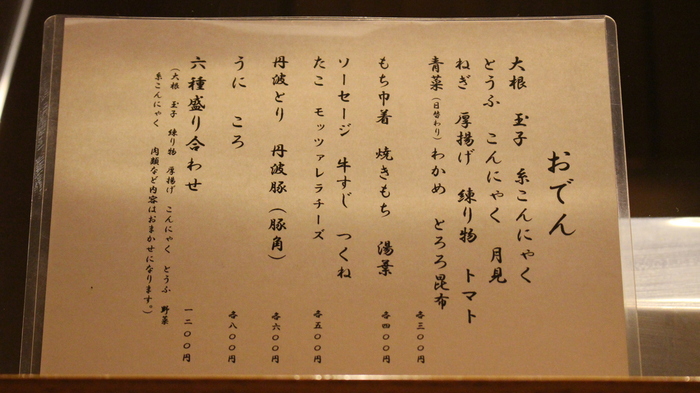 おでん
大根 玉子 糸こんにゃく
とうふ こんにゃく 月見
ねぎ 厚揚げ 練り物 トマト
青菜(日替わり) わかめ とろろ昆布 各三〇〇円
もち巾着 焼きもち 湯葉 各四〇〇円
ソーセージ 牛すじ つくね
たこ モッツァレラチーズ 各五〇〇円
丹波とり 丹波豚(豚角) 各六〇〇円
うに ころ 各八〇〇円
六種盛り合わせ 一二〇〇円
(大根 玉子 練り物 厚揚げ こんにゃく とうふ 野菜
糸こんにゃく 肉類など内容はおまかせになります。)